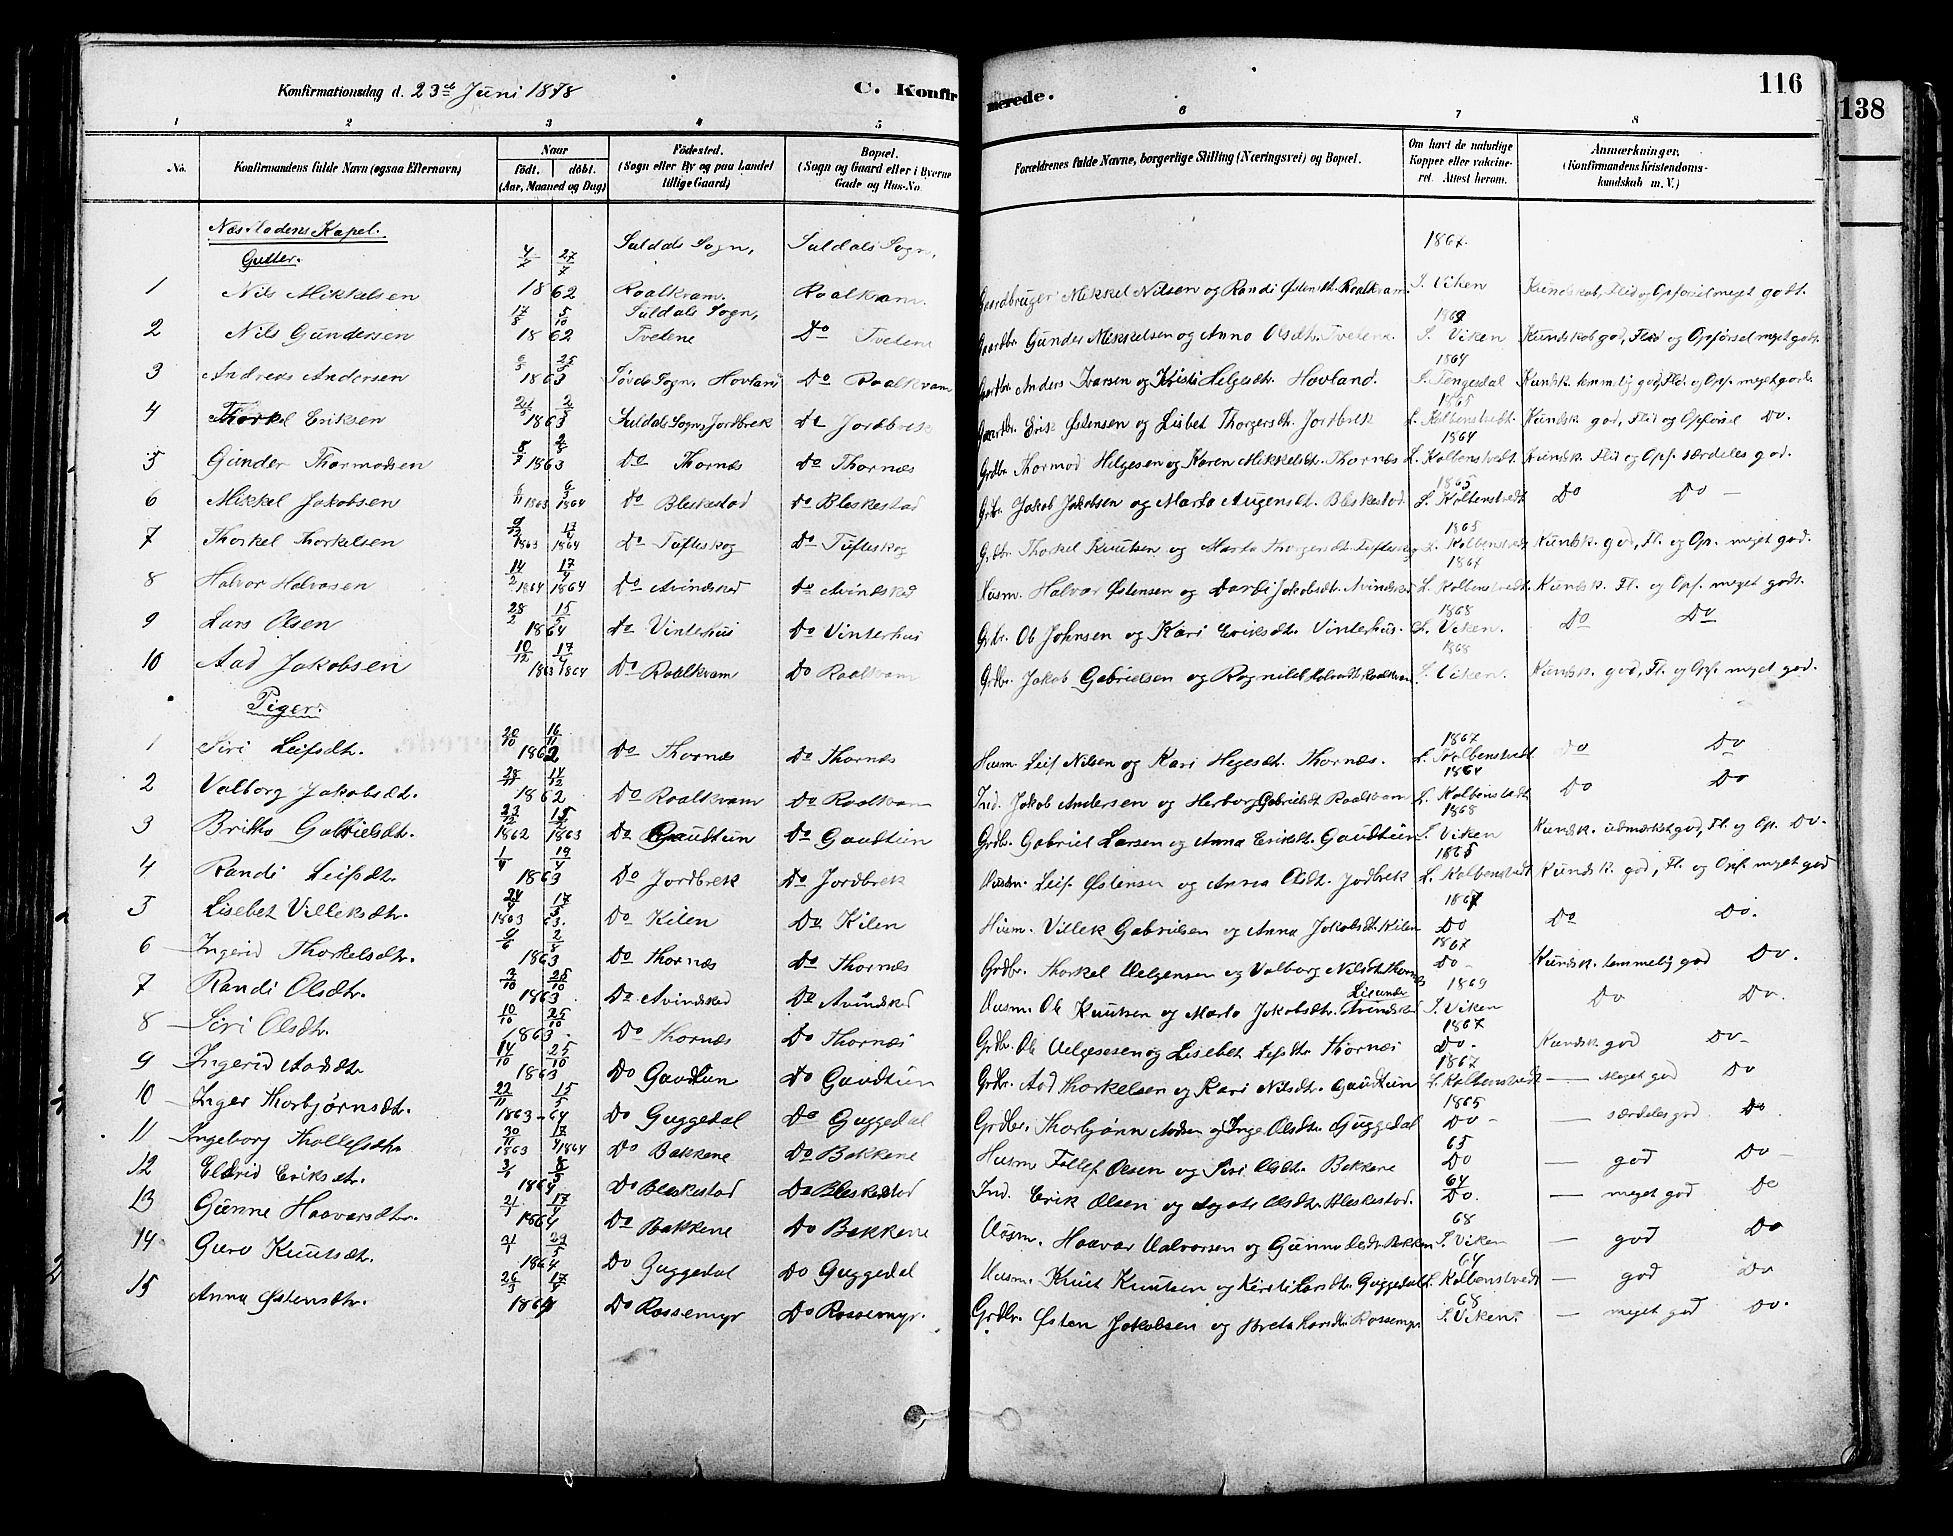 Konfirmationsdag d. 23de Juni 1878 C. Konfirmerede. 116
138
1 2 3 4 5 6 7 8
No. Konfirmandens fulde Navn (ogsaa Efternavn) Naar födt. döbt. (Aar, Maaned og Dag) Födested. (Sogn eller By og paa Landet tillige Gaard) Bopæl. (Sogn og Gaard eller i Byerne Gade og Hus-No. Forældrenes fulde Navne, borgerlige Stilling (Næringsvei) og Bopæl. Om havt de naturlige Kopper eller vaccineret. Attest herom. Anmærkninger. (Konfirmandens Kristendomskundskab m. V.)
Næsflodens Kapel.
Gutter.
1 Nils Mikkelsen 4/7 27/7 1862 Suldals Sogn, Roalkvam. Suldals Sogn, Roalkvam. Gaardbruger Mikkel Nilsen og Randi Østensdt. Roalkvam 1867. S. Viken Kundskab, Flid og Opførsel meget godt.
2 Nils Gundersen 17/8 5/10 1862 Suldals Sogn, Tvetene Do Tvetene Gaardbr. Gunder Mikkelsen og Anna Olsdtr. Tvetene. 1869 S. Viken Kundskab god, Flid og Opførsel meget god.
3 Andreas Andersen 6/5 25/5 1863 Søvde Sogn, Hovland Do Roalkvam Gaardbr. Anders Ivarsen og Kristi Helgesdtr. Hovland. 1864 S. Tengesdal Kundsk. temmelig god, Flid og Opf. meget gode
4 Thorkel Eriksen 21/3 2/5 1863 Suldals Sogn, Jordbrek Do Jordbrek Gaardbr. Erik Østensen og Lisbet Thorgersdt. Jordbrek 1865 L. Kolbenstvedt. Kundsk. god, Flid og Opførsel Do.
5 Gunder Thormodsen 8/7 2/8 1863 Do Thornæs Do Thornæs Grdbr. Thormod Helgesen og Karen Mikkelsdtr. Thornæs 1864 L. Kolbenstvedt. Kundsk. Flid og Opf. særdeles god.
6 Mikkel Jakobsen 6/11 1863 6/3 1864 Do Bleskestad Do Bleskestad Grdbr. Jakob Jakobsen og Marta Augensdt. Bleskestad. 1865 L. Kolbenstvedt Do Do —
7 Thorkel Thorkelsen 9/12 1863 17/4 1864 Do Tufteskog Do Tufteskog Grdbr. Thorkel Knutsen og Marta Thorgersdt. Tufteskog 1865 L. Kolbenstvedt Kundsk. god, Fl. og Op. meget god.
8 Halvor Halvorsen 14/2 1864 17/4 1864 Do Avindsked Do Avindsked Husm. Halvor Østensen og Jakobsdt. Avindsked 1867 L. Kolbenstvedt. Kundsk. Fl. og Opf. meget godt.
9 Lars Olsen 28/2 15/5 1864 Do Vinterhus Do Vinterhus Grbr. Ole Johnsen og Kari Eriksdt. Vinterhus. 1868 S. Viken. Do Do
10 Aad Jakobsen 10/12 1863 17/4 1864 Do Roalkvam Do Roalkvam Grdbr. Jakob Gabrielsen og Ragnild Roalkvam 1868 S. Viken. Kundsk. god, Fl. og Opf. meget god.
Piger.
1 Siri Leifsdtr. 20/10 16/11 1862 Do Thornæs Do Thornæs Husm. Leif Nilsen og Kari Hegesdt. Thornæs. 1867 L. Kolbenstvedt Do Do
2 Valborg Jakobsdt. 28/11 14/12 1862 Do Roalkvam Do Roalkvam Ind. Jakob Andersen og Herborg Gabrielsdt Roalkvam 1864 L. Kolbenstvedt Do Do
3 Britha Gabrielsdt. 23/12 1862 1863 Do Gautetun Do Gautetun Grdbr. Gabriel Larsen og Anna Eriksdt. Gautetun 1868 S. Viken Kundsk. udmærket god, Fl. og Op. Do.
4 Randi Leifsdt. 1/4 19/4 1863 Do Jordbrek Do Jordbrek Husm. Leif Østensen og Anna Olsdt. Jordbrek 1865 L. Kolbenstvedt Kundsk. god, Fl. og Opf. meget god
5 Lisebet Villeksdtr. 24/4 1863 17/5 63. Do Kilen Do Kilen Husm. Villek Gabrielsen og Anna Jakobsdt. Kilen 1867 Do Do Do.
6 Ingerid Thorkelsdtr. 9/6 2/8 1863 Do Thornæs Do Thornæs Grdbr. Thorkel Helgesen og Valborg Nilsdt. Thornæs 1867 Do - Kundsk. temmelig god Do.
7 Randi Olsdtr. 3/10 25/10 1863 Do Avindsked Do Avindsked Husm. Ole Knutsen og Marta Jakobsdtr. Avindsked 1869 S. Viken Do Do.
8 Siri Olsdtr. 10/10 25/10 1863. Do Thornæs Do Thornæs Grdbr. Ole Helgesen og Lisebet Leifsdtr Thornæs 1867 Do. Kundsk god Do-
9 Ingerid Aadsdtr 14/10 25/10 1863 Do Gautetun Do Gautetun Grdbr. Aad Thorkelsen og Kari Nilsdt. Gautetun 1867 L. Kolbenstvedt — Meget god Do
10 Inger Thorbjørnsdt. 22/11 15/5 1863-64 Do Guggedal Do Guggedal Grdbr. Thorbjønn Aadsen og Inge Olsdtr. Guggedal 1865 Do - — særdeles god Do.
11 Ingeborg Thollefsdtr. 30/11 1863 17/4 1864 Do Bakkene Do Bakkene Husm Tollef Olsen og Siri Olsdtr. Bakkene 65 Do — god Do -
12 Eldrid Eriksdtr. 8/5 1864 Do Bleskestad Do Bleskestad Ind. Erik Olsen og Agate Olsdtr. Bleskestad. 64 Do. — meget god Do
13 Gunne Haavarsdtr. 21/1 17/4 1864 Do Bakkene Do Bakkene Husm. Haavar Halvorsen og Gunne Bakken 68 S. Viken — god Do
14 Guro Knutsdt. 1864 Do Guggedal Do Guggedal Husm. Knut Knutsen og Kirsti Larsdtr. Guggedal 64 L. Kolbenstvedt — god Do
15 Anna Østensdtr. 26/3 17/4 1864 Do Rossemyr Do Rossemyr. Grdbr. Østen Jakobsen og Breta Larsdtr Rossemyr 68 S. Viken. — meget god Do.